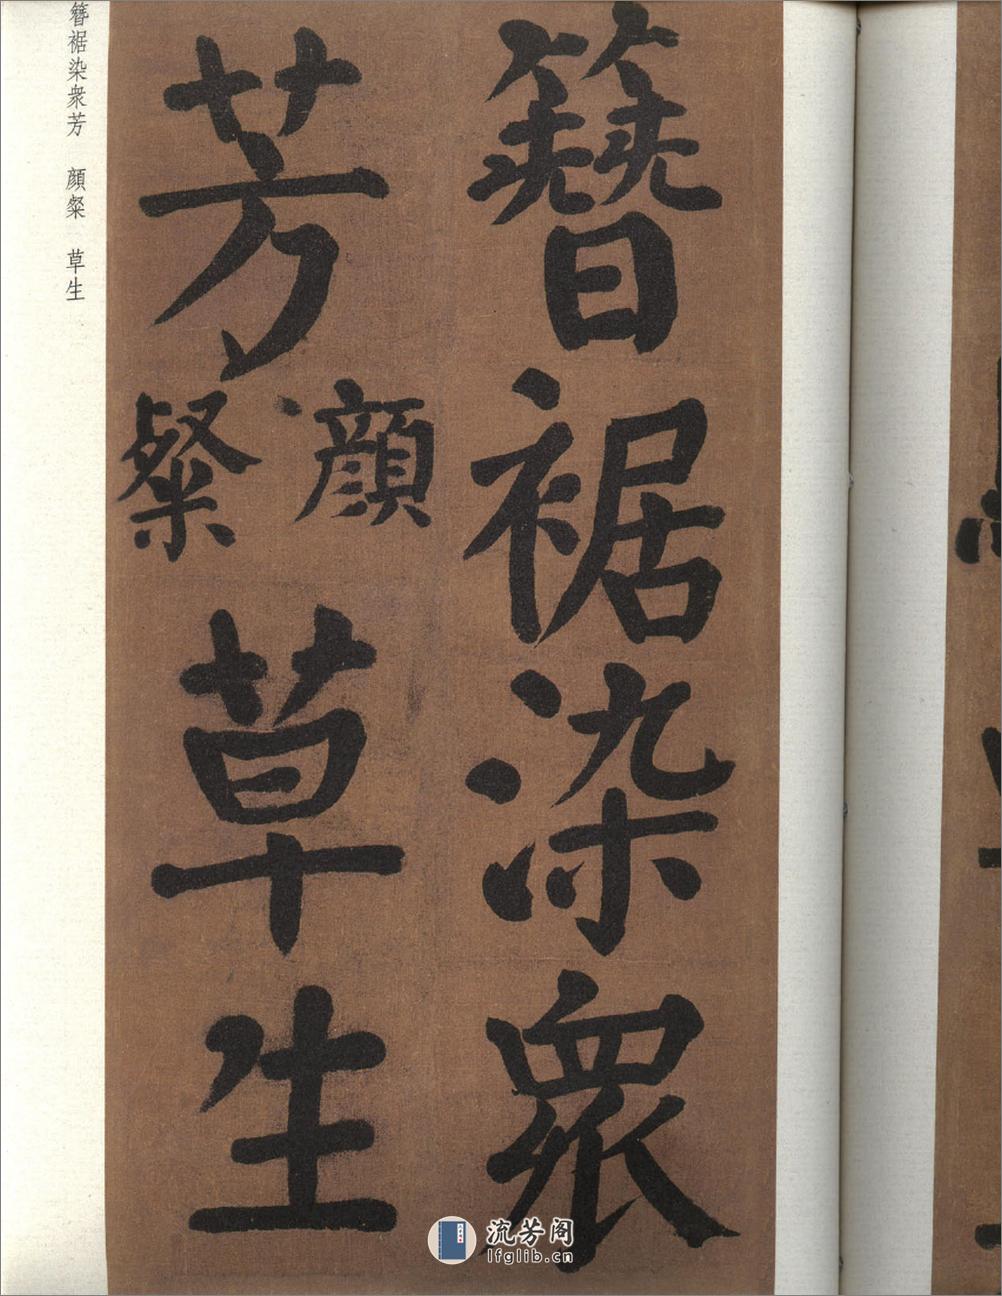 簪裾染衆
芳
顔
粲
草生
簪裾染衆芳　顔粲　草生
流芳阁
lfglib.cn